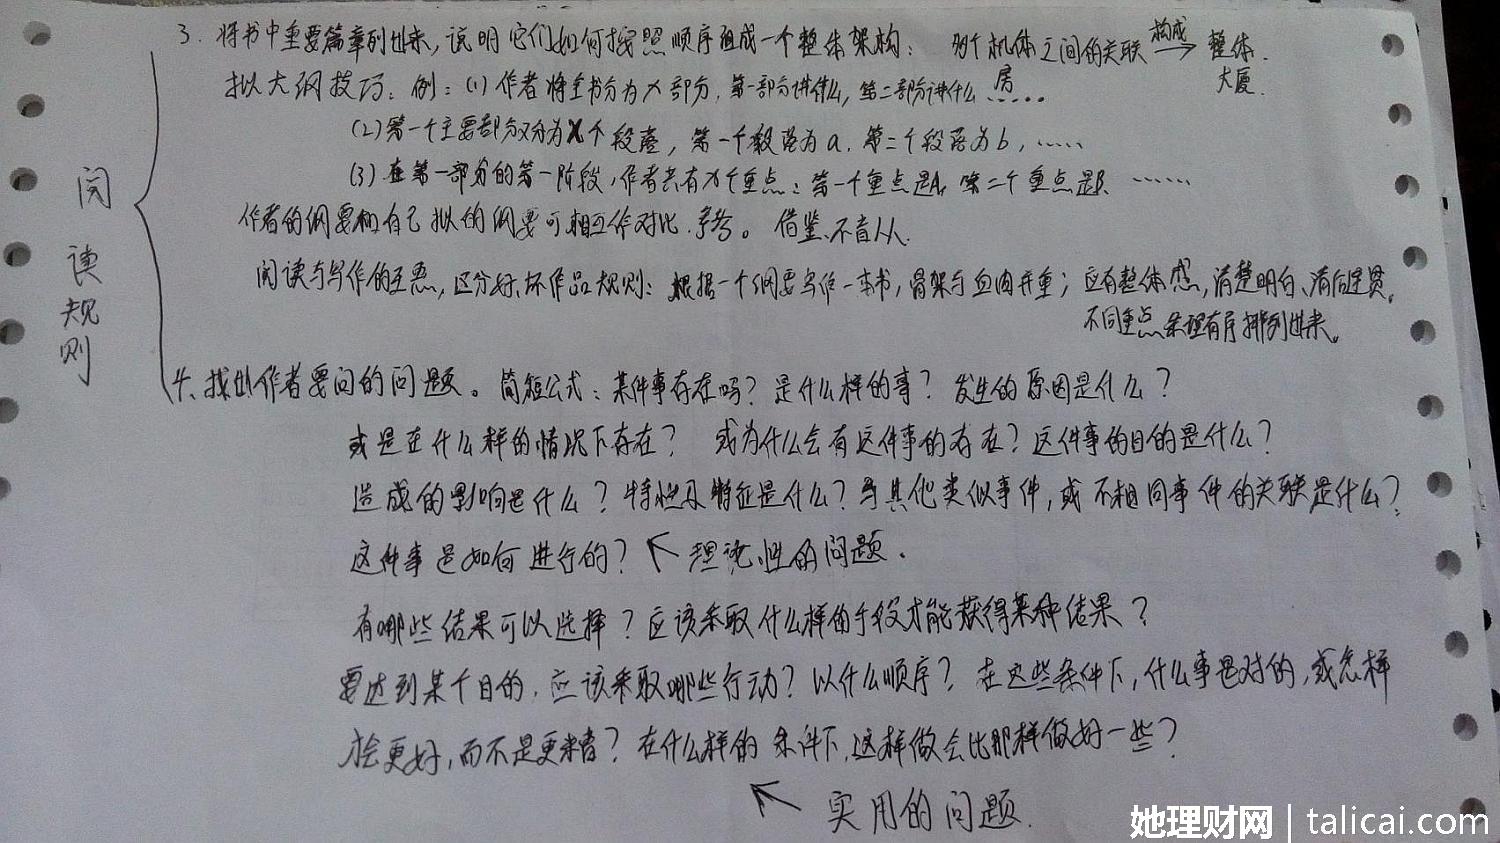 3. 将书中重要篇章列出来,说明它们如何按照顺序组成一个整体架构: 多个机体之间的关联 构成→ 整体.
拟大纲技巧. 例:(1)作者将全书分为X部分,第一部分讲什么,第二部分讲什么…… 房 大厦.
(2)第一个主要部分又分为X个段落,第一个段落为a.第二个段落为b,……
(3)在第一部分的第一阶段,作者共有X个重点:第一个重点是A,第二个重点是B. ……
作者的纲要和自己拟的纲要可相互作对比.参考。借鉴、不盲从.
阅读与写作的互惠,区分好、坏作品规则:根据一个纲要写作一本书,骨架与血肉并重;应有整体感,清楚明白、前后连贯。
不同重点条理有序排列出来。
阅读规则
4、找出作者要问的问题。简短公式:某件事存在吗?是什么样的事?发生的原因是什么?
或是在什么样的情况下存在? 或为什么会有这件事的存在?这件事的目的是什么?
造成的影响是什么?特性及特征是什么?与其他类似事件,或不相同事件的关联是什么?
这件事是如何进行的?↖理论性的问题.
有哪些结果可以选择?应该采取什么样的手段才能获得某种结果?
要达到某个目的.应该采取哪些行动?以什么顺序?在这些条件下,什么事是对的,或怎样
才会更好,而不是更糟?在什么样的条件下,这样做会比那样做好一些?
↖ 实用的问题.
她理财网 | talicai.com